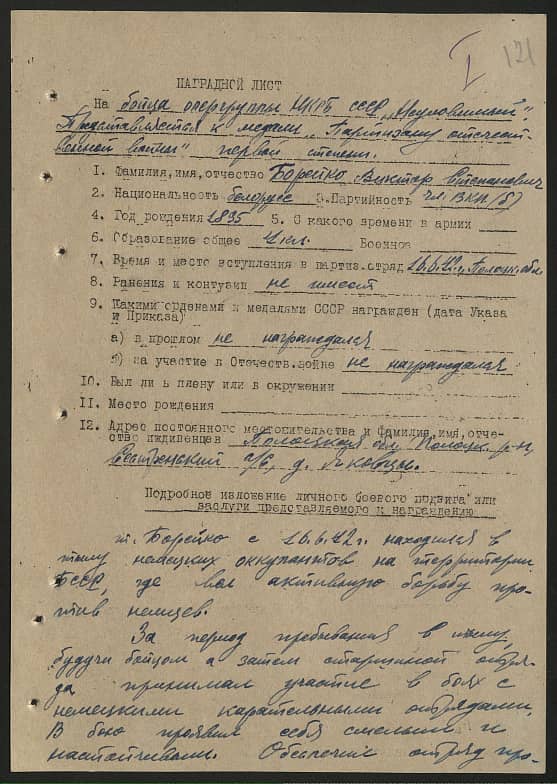 I 121
НАГРАДНОЙ ЛИСТ
На бойца опергруппы ЦКРБ СССР „Неуловимый".
Представляется к медали „Партизану отечест-
венной войны" первой степени.
1. Фамилия,имя,отчество Борейко Виктор Степанович
2. Национальность белорусс 3.Партийность чл. ВКП/б/
4. Год рождения 1895 5. С какого времени в армии
6. Образование общее 4 кл. Военное
7. Время и место вступления в партиз.отряд 16.6.42 г. Полоцк. обл.
8. Ранения и контузии не имеет
9. Какими орденами и медалями СССР награжден (дата Указа
и Приказа)
а) в прошлом не награждался
б) за участие в Отечеств.войне не награждался
10. Был ли в плену или в окружении
11. Место рождения
12. Адрес постоянного местожительства и Фамилия,имя,отче-
ство иждивенцев Полоцкая обл. Полоцк. р-н,
с/с, д.
Подробное изложение личного боевого подвига или
заслуги представляемого к награждению
т. Борейко с 16.6.42 г. находился в
тылу немецких оккупантов на территории
БССР, где вел активную борьбу про-
тив немцев.
За период пребывания в тылу
будучи бойцом а затем старшиной отря-
да принимал участие в боях с
немецкими карательными отрядами.
В бою проявил себя смелым и
настойчивым. Обеспечил отряд про-